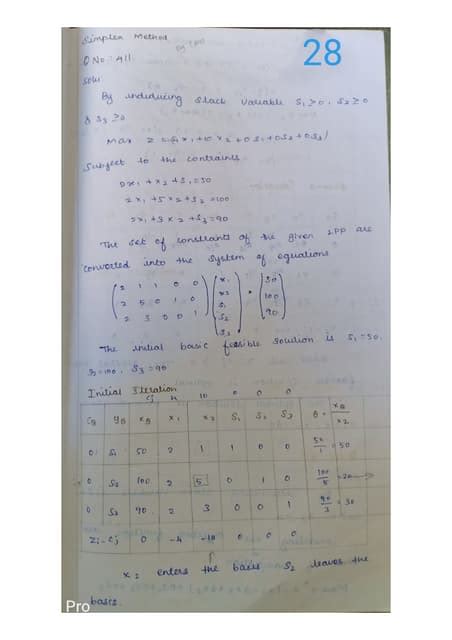 Simplex Method
28
Q No : A11
Soln:
By introducing slack variable S₁ ≥ 0, S₂ ≥ 0
& S₃ ≥ 0
Max z = 4x₁ + 10x₂ + 0S₁ + 0S₂ + 0S₃
Subject to the contraints
2x₁ + x₂ + S₁ = 50
2x₁ + 5x₂ + S₂ = 100
2x₁ + 3x₂ + S₃ = 90
The set of constraints of the given LPP are
converted into the system of equations
2 1 1 0 0 x₁ 50
2 5 0 1 0 x₂ = 100
2 3 0 0 1 S₁ 90
S₂
S₃
The initial basic feasible solution is S₁ = 50,
S₂ = 100, S₃ = 90
Initial Iteration
Cj 4 10 0 0 0
CB YB XB x₁ x₂ S₁ S₂ S₃ θ = XB/x₂
0 S₁ 50 2 1 1 0 0 50/1 = 50
0 S₂ 100 2 5 0 1 0 100/5 = 20 →
0 S₃ 90 2 3 0 0 1 90/3 = 30
Zj - Cj 0 -4 -10 0 0 0
↑
x₂ enters the basis S₂ leaves the
basis
Pro